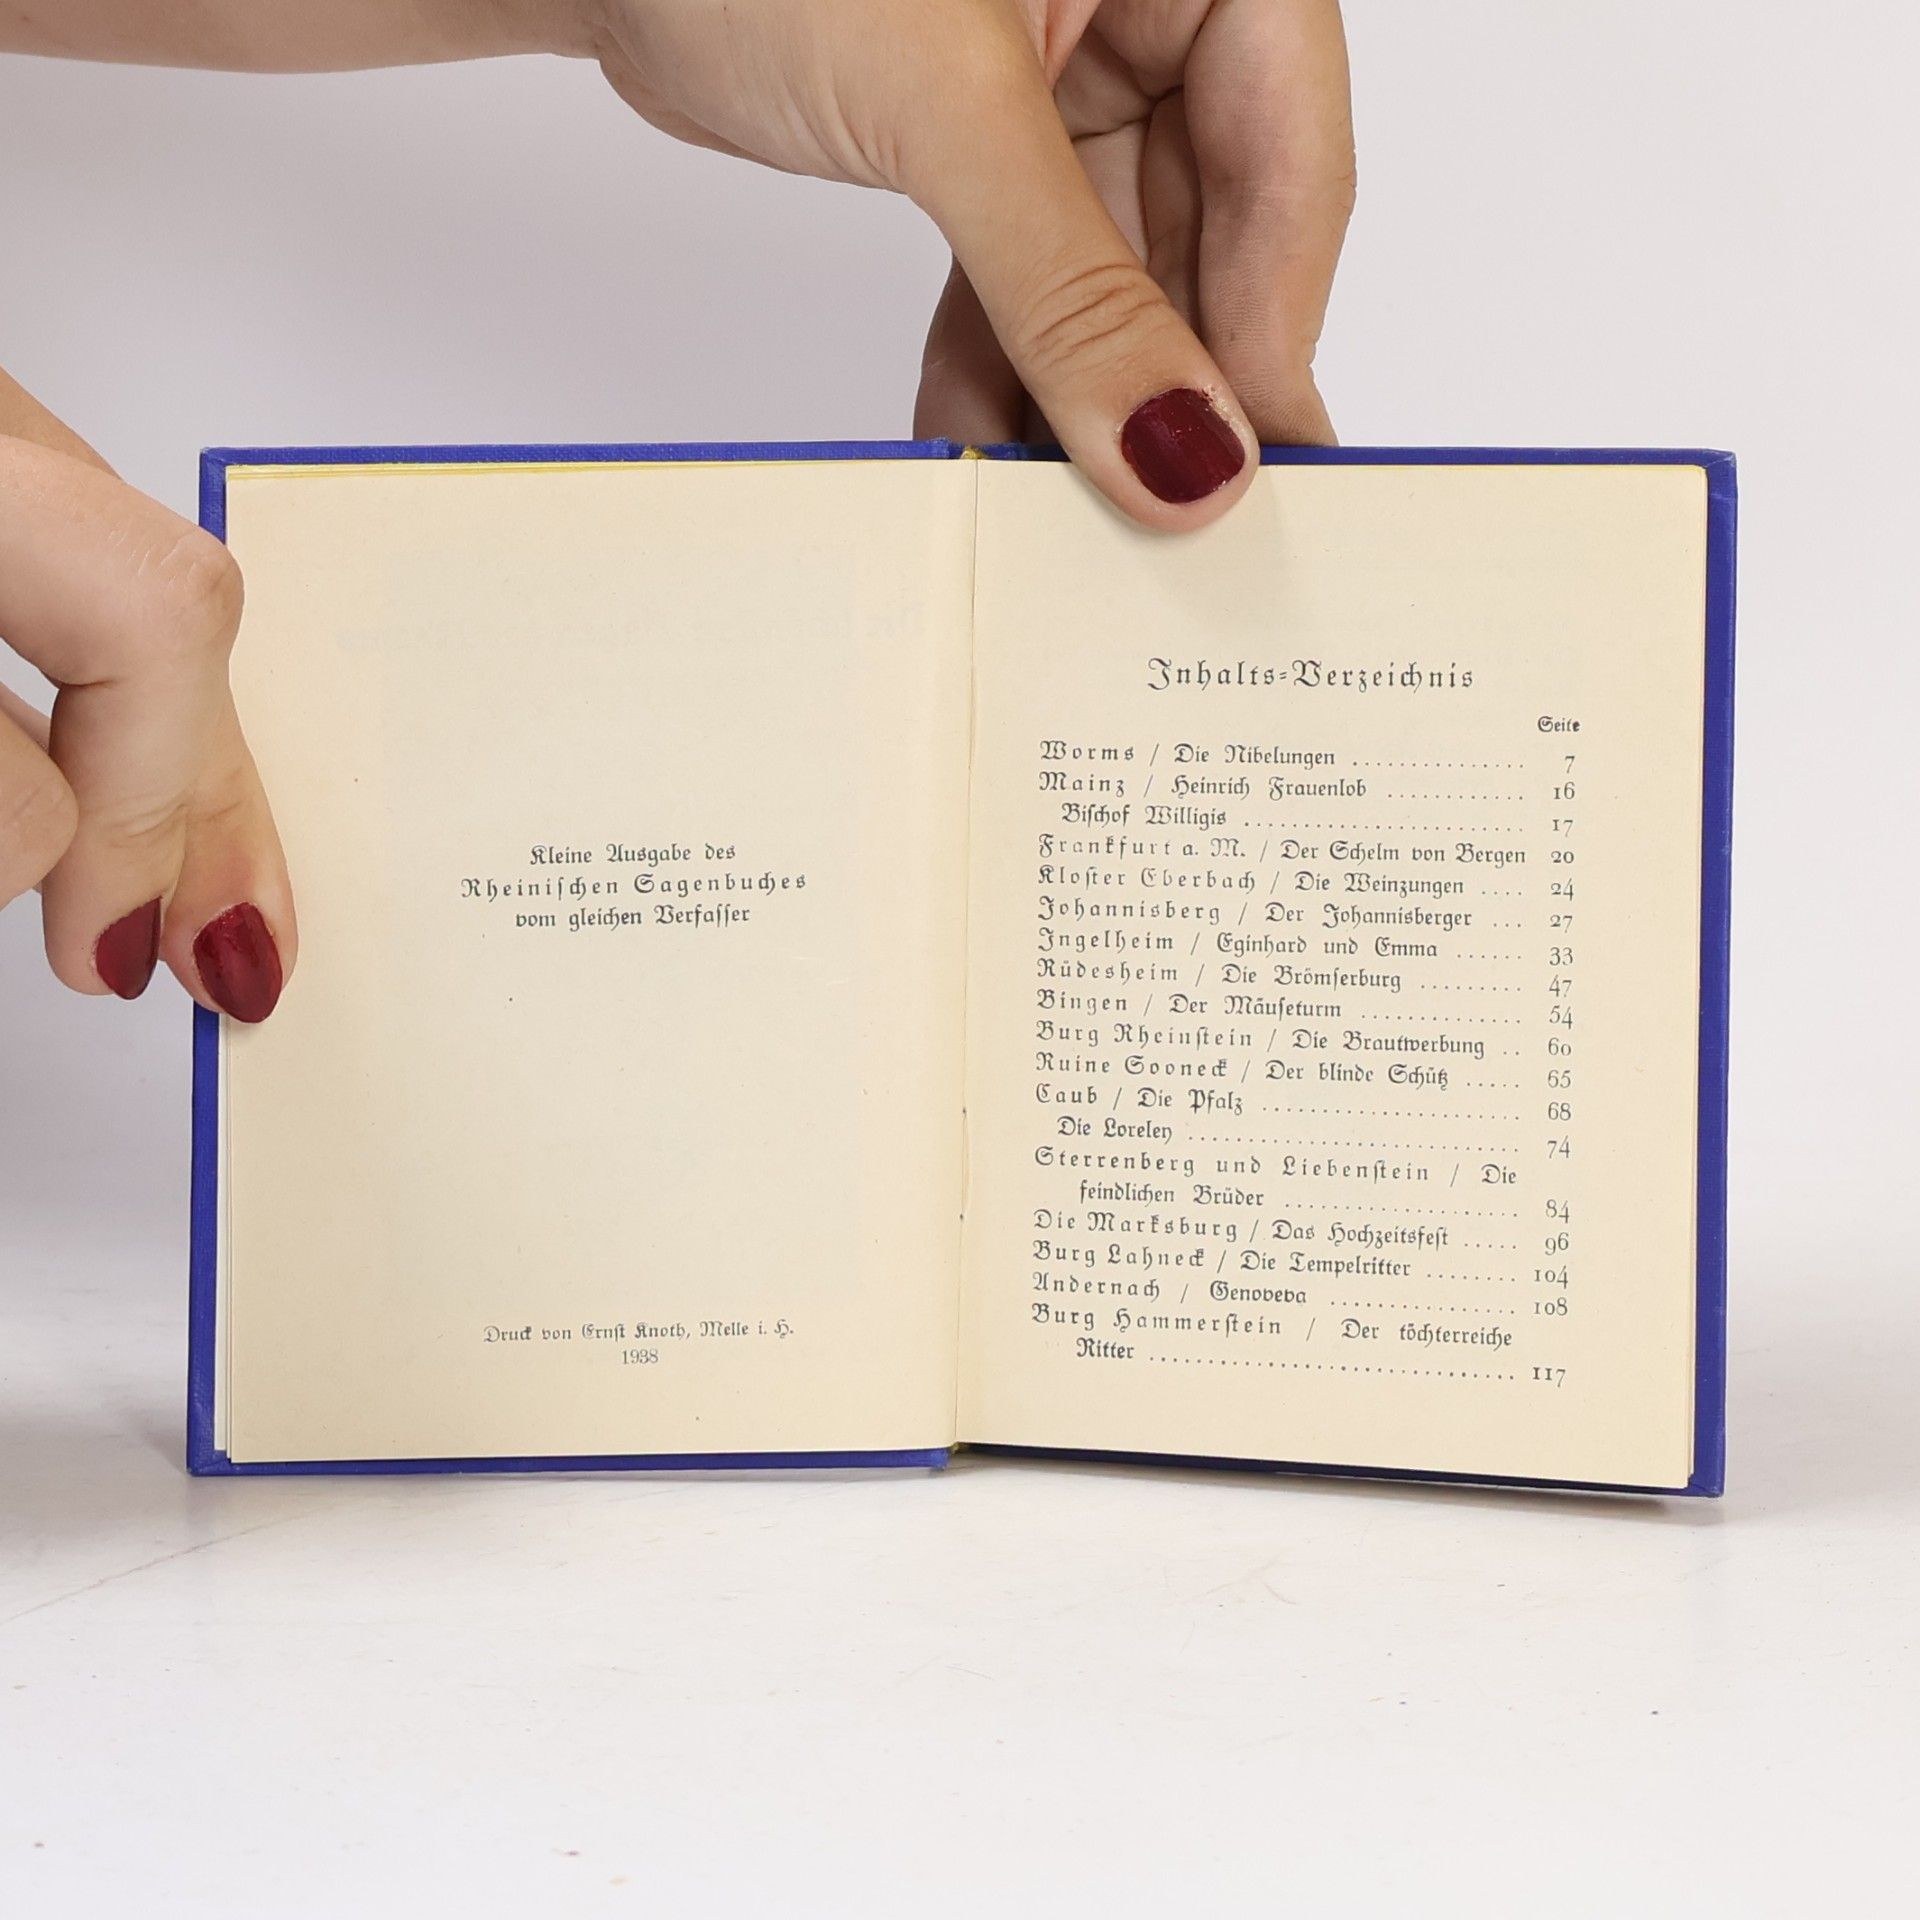 Kleine Ausgabe des
Rheiniſchen Sagenbuches
vom gleichen Verfaſſer
Druck von Ernſt Knoth, Melle i. H.
1938
Inhalts=Verzeichnis
Seite
Worms / Die Nibelungen ............... 7
Mainz / Heinrich Frauenlob ............ 16
Biſchof Willigis ........................ 17
Frankfurt a. M. / Der Schelm von Bergen 20
Kloſter Eberbach / Die Weinzungen .... 24
Johannisberg / Der Johannisberger ... 27
Ingelheim / Eginhard und Emma ...... 33
Rüdesheim / Die Brömſerburg ......... 47
Bingen / Der Mäuſeturm .............. 54
Burg Rheinſtein / Die Brautwerbung .. 60
Ruine Sooneck / Der blinde Schütz ..... 65
Caub / Die Pfalz ...................... 68
Die Loreley ............................. 74
Sterrenberg und Liebenſtein / Die
feindlichen Brüder .................... 84
Die Marksburg / Das Hochzeitsfeſt ..... 96
Burg Lahneck / Die Tempelritter ........ 104
Andernach / Genoveva ................ 108
Burg Hammerſtein / Der töchterreiche
Ritter ................................ 117